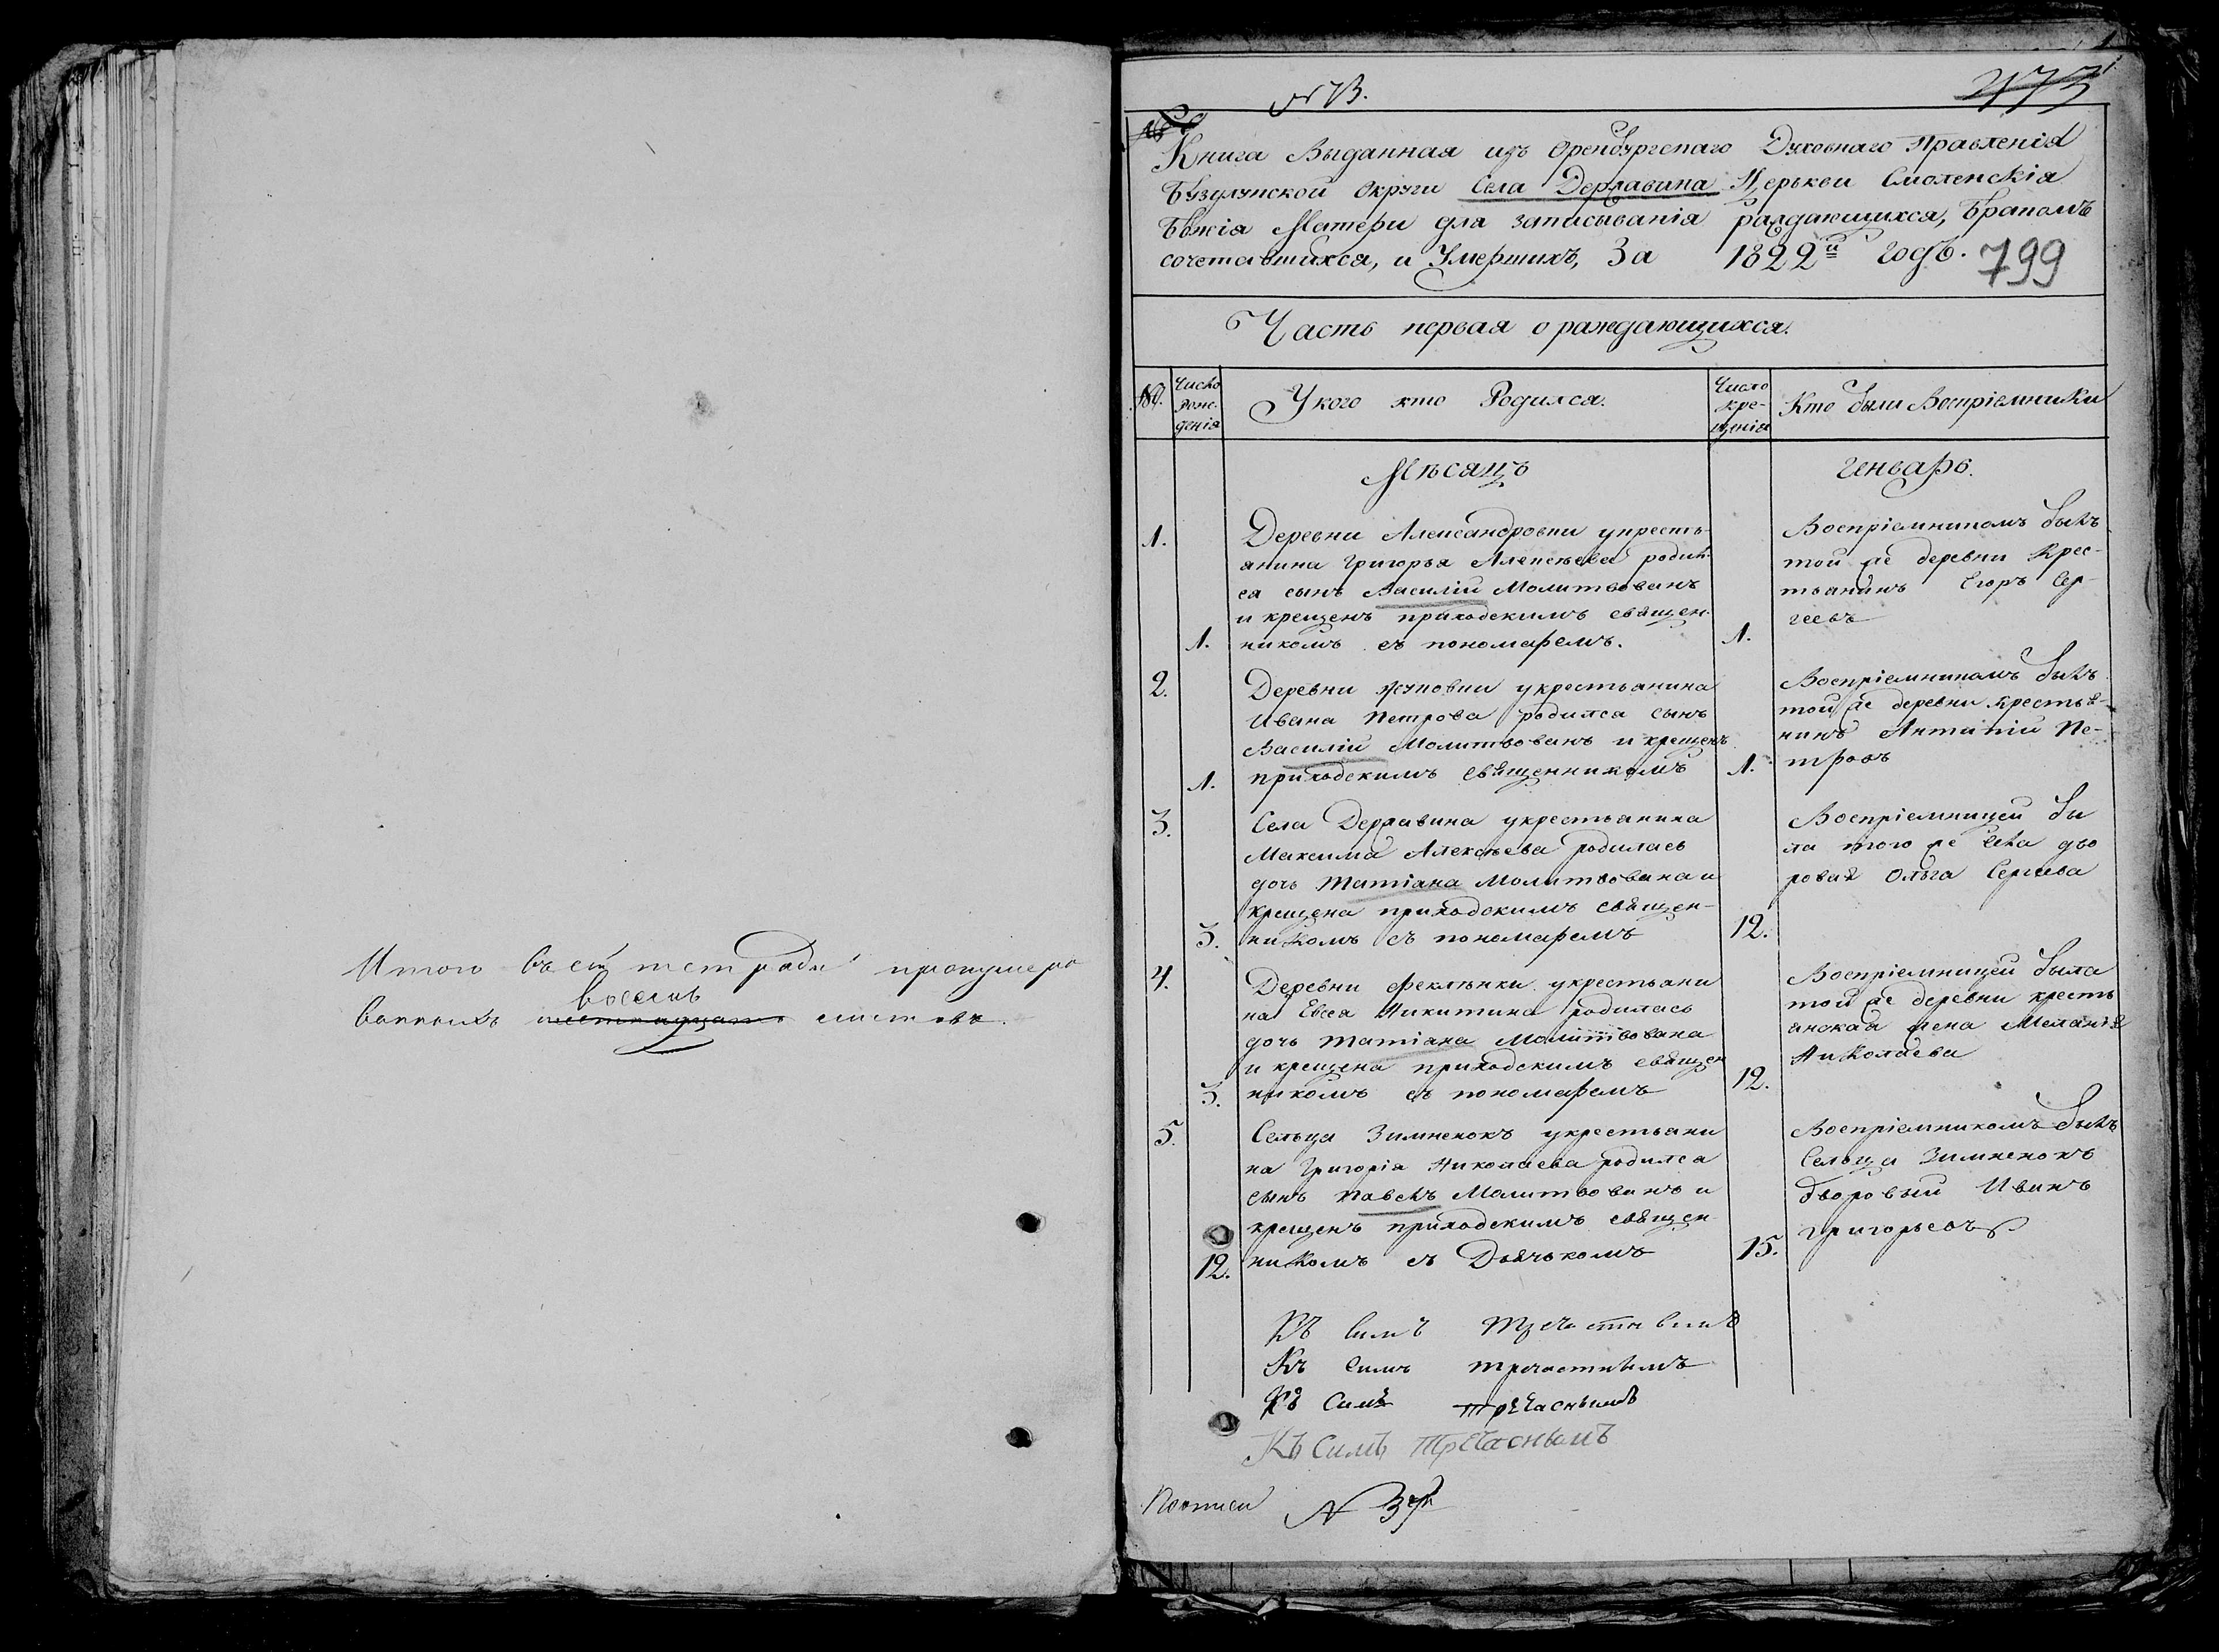 Итого въ сей тетради пронумеро
ванныхъ восемь листовъ.
799
Книга Выданная изъ Оренбургскаго Духовнаго Правленія
Бузулукской Округи Села Державина Церькви Смоленскія
Божія Матери для записыванія раждающихся, бракомъ
сочетавшихся, и Умершихъ, За 1822й годъ.
Часть первая о раждающихся.
№.
Число рож-
денія
У кого кто Родился.
Число
кре-
щенія
Кто были Воспріемники
Мѣсяцъ
Генварь.
1.
Деревни Александровки укресть-
янина Григорья Алексѣева родил-
ся сынъ Василій Молитвованъ
и крещенъ приходскимъ священ-
1. никомъ съ пономаремъ.
1.
Воспріемникомъ былъ
той же деревни Крес-
тьянинъ Егоръ Сер-
геевъ
2.
Деревни Жуковки укрестьянина
Ивана Петрова родился сынъ
Василій Молитвованъ и крещенъ
1. приходскимъ священникомъ
1.
Воспріемникомъ былъ
той же деревни крестья-
нинъ Антипій Пе-
тровъ
3.
Села Державина укрестьянина
Максима Алексѣева родилась
дочь Татіана Молитвована и
крещена приходскимъ священ-
3. никомъ съ пономаремъ
12.
Воспріемницей бы
ла того же села дво
ровая Ольга Сергѣева
4.
Деревни Феклѣнки укрестьяни
на Евсея Никитина родилась
дочь Татіана Молитвована
и крещена приходскимъ священ
3. никомъ съ пономаремъ
12.
Воспріемницей была
той же деревни кресть
янская жена Меланія
Николаева
5.
Сельца Зимненокъ укрестьяни
на Григорія Николаева родился
сынъ Павелъ Молитвованъ и
крещенъ приходскимъ священ-
12. никомъ съ Дьячькомъ
15.
Воспріемникомъ былъ
Сельца Зимненокъ
дворовый Иванъ
Григорьевъ
Къ симъ
Къ симъ
Къ Симъ
Къ Симъ